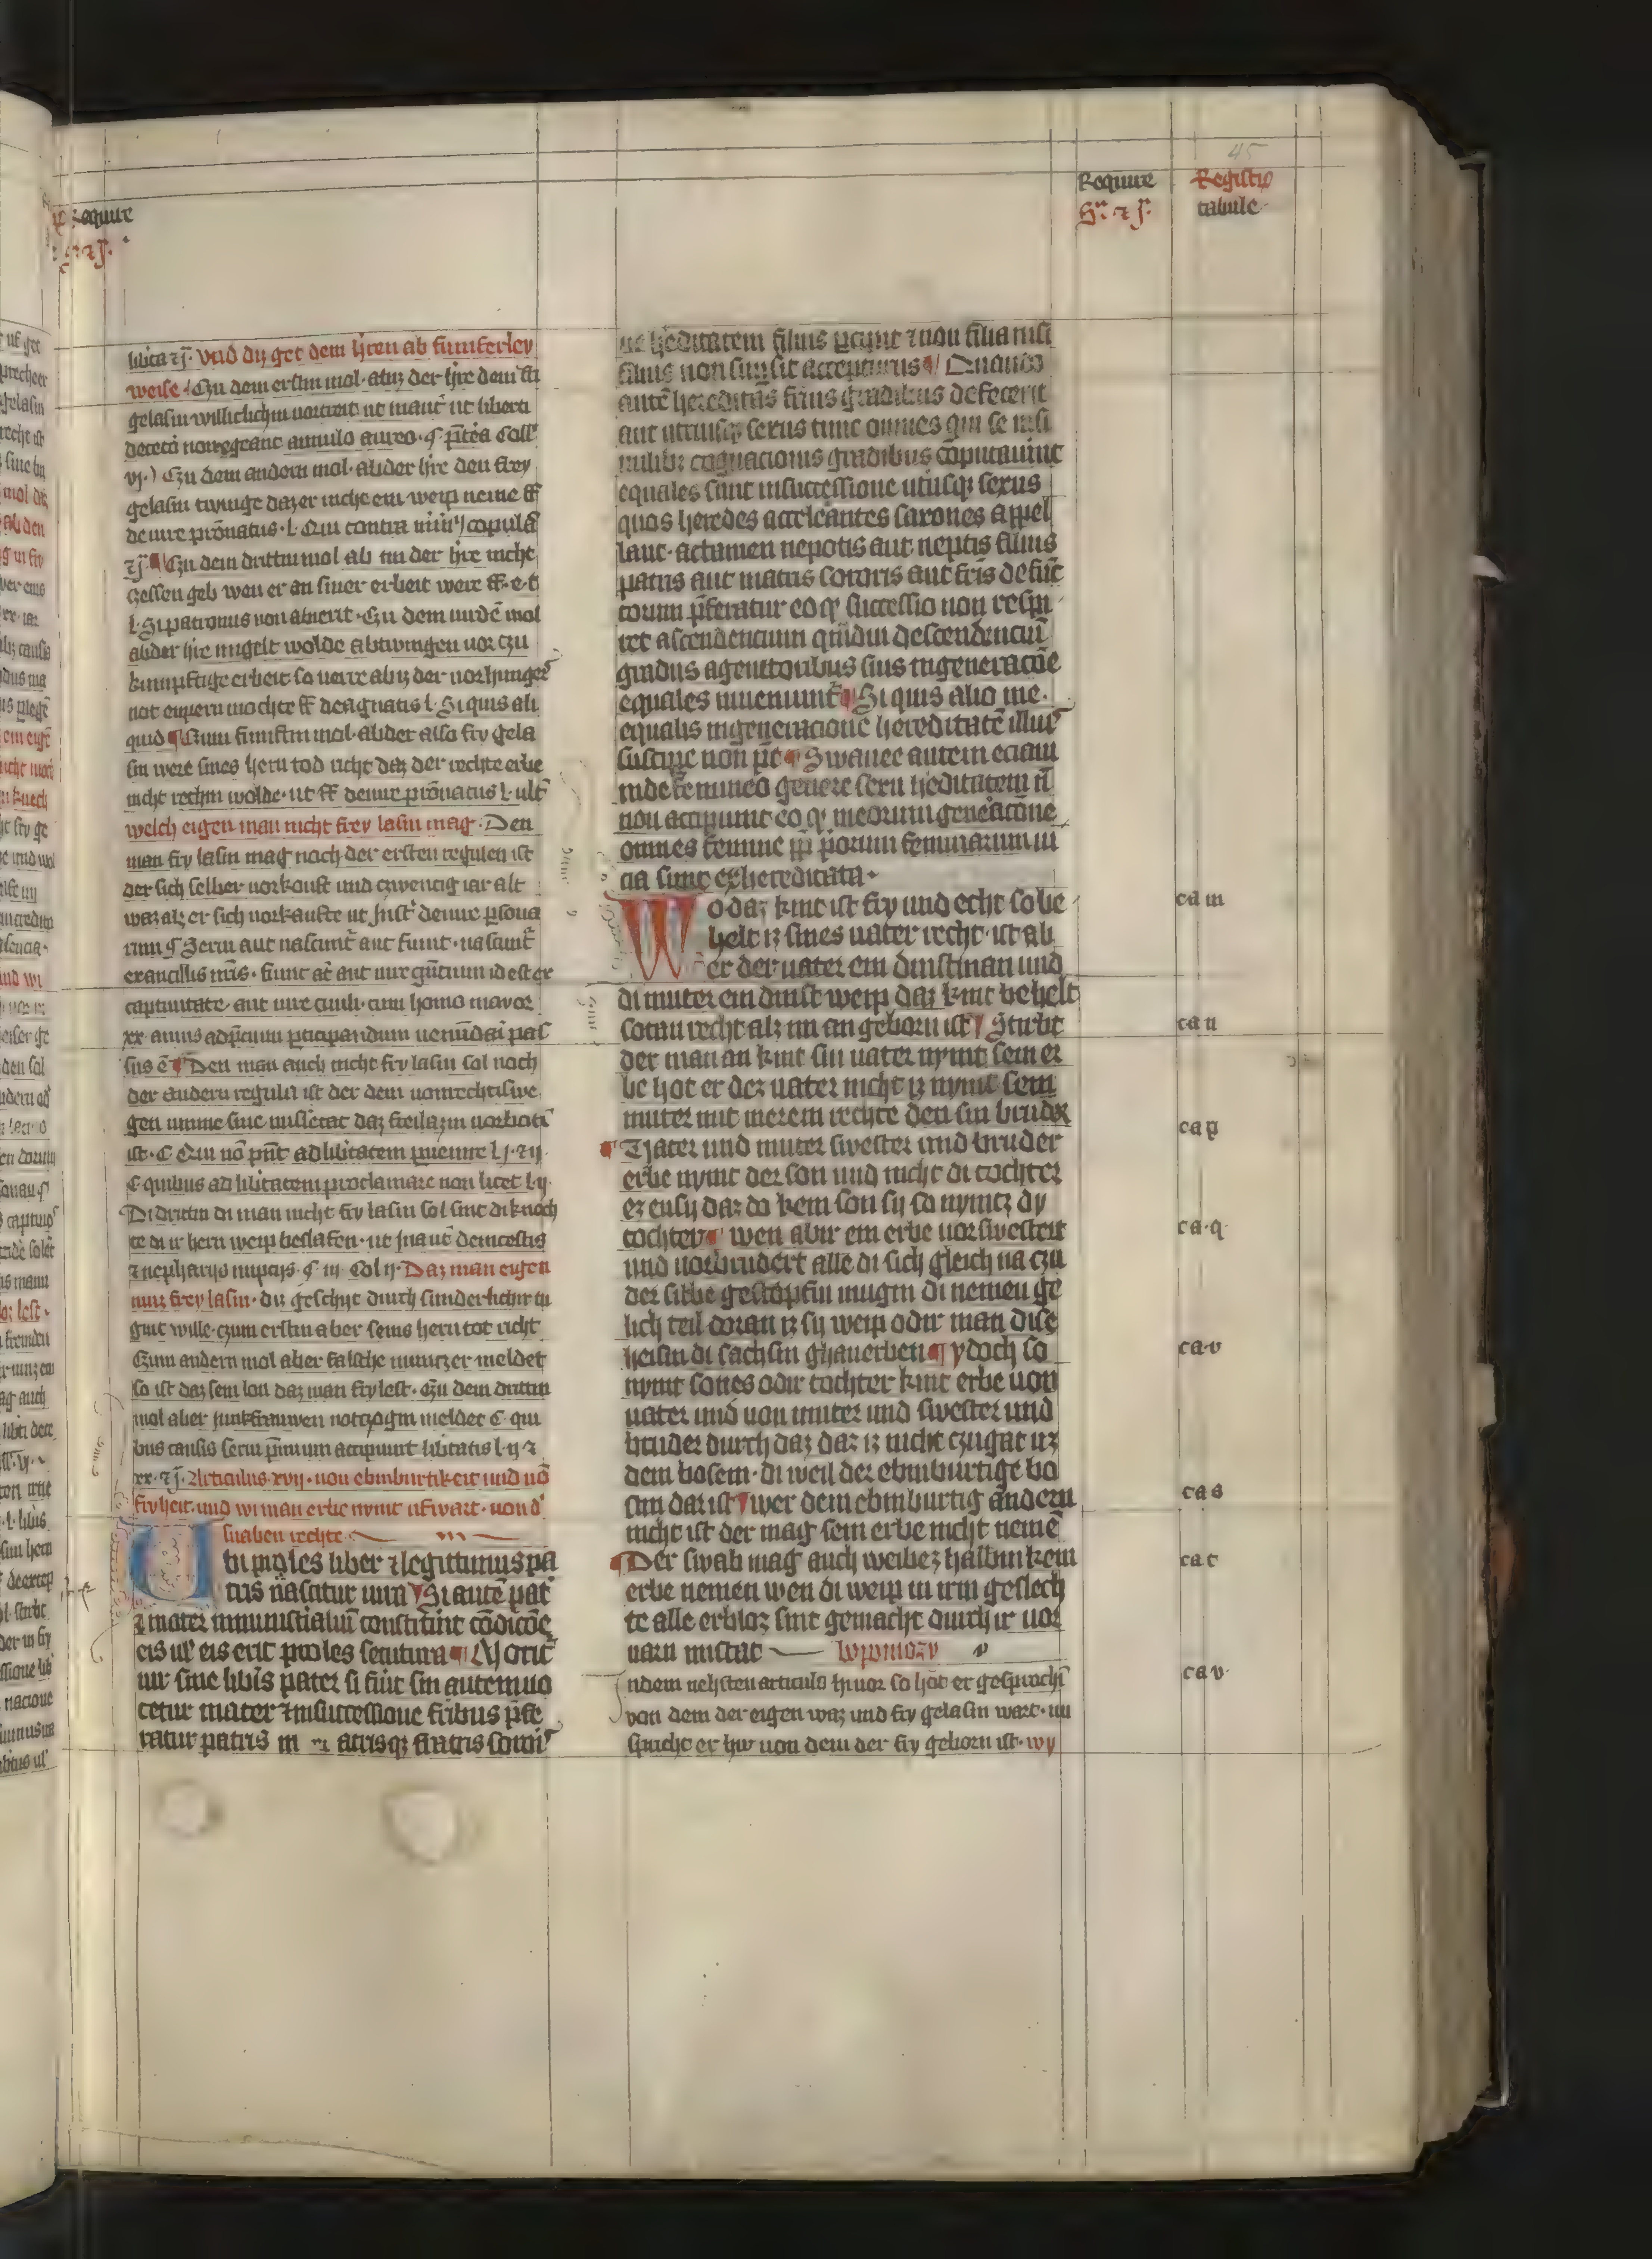 45
Require
Registrum
tabule
libita zj. Und diz get dem hren ab funferley
weise Czu dem erstin mol. abiz der hre dem fri
gelasin
vj. Czu dem andern mol. ab der hre den frey
gelasin twinge daz er nicht ein weip neme ff
de iure pronatus. l. Qui contra
zj. Czu dem drittin mol ab im der hre nicht
zcessen geb wen er an siner erbeit were ff. e. t
l. Si patronus non aluerit. Czu dem virdē mol
ab der hre mit gelt wolde abtwingen vor czu
kunuftige erbeit so verre abiz der vor hunger
not enpern mochte ff de agnatis l. Si quis ali
quid Czum funftin mol. ab der also fry gela
sin were sines hern tod nicht daz der rechte erbe
nicht rechin wolde. ut ff de iure pronatus l. ult
welch eigen man nicht frey lasin mag. Den
man fry lasin mag noch der ersten regulen ist
der sich selber vorkouft und czwenczig iar alt
waz alz er sich vorkaufte ut Inst de iure persona
rum § Servi aut nascunt aut fiunt. nascunt
ex ancillis nris. fiunt at aut iure gencium id est ex
captivitate. aut iure civili. cum homo maior
xx. annis ad precium participandum venundari pas
sus ē Den man auch nicht fry lasin sol noch
der andern regulin ist der dem von rechtis we
gen umme sine missetat daz freilazin vorbotin
ist. C Qui nō pnt ad libertatem pvenire l j. z ij.
C quibus ad libertatem proclamare non licet l. ij.
Di dritin di man nicht fry lasin sol sint di knech
te di ir hern weip beslafen. ut
z nepharijs nupcijs. § in. Col ij. Daz man eigen
muz frey lasin. diz geschyt durch sunderlichir tu
gint wille. czum erstin aber seins hern tot richt
Czum andern mol aber falsche munczer meldet
so ist daz sein lon daz man fry lest. Czu dem drittin
mol aber junkfrauwen notczogin meldet C. qui
bus causis servi premium accipiunt libertatis l. ij z
xx. z j. Articulus xvij. von ebinburtikeit und vō
fryheit. und wi man erbe nymt ufwart. von d
swaben rechte
Ubi proles liber z legittimus pa
tris nascitur iura Si autē pat
z mater ministraliuū constitint cōdicōe
eis ul' eis erit proles secutura Morit
ur sine libis pater si fūit sin autem uo
cetur mater z in successione fribus pfe
ratur patris m z atris qz fratris somi
ut heditatem filius pcipit z non filia nisi
filius non sit accepturus Quando
autē hereditas frius gradibus defecerit
aut utriusqz sexus tunc omnes qui se nisi
milibz cognacionis gradibus cōputaviut
equales sunt in successione utriusqz sexus
quos heredes acceleantes saxones appel
lant. actamen nepotis aut neptis filius
patris aut matris sororis aut fris defuc
torum pferatur eo qz successio non respi
cit ascendencium qmdiu descendenciū
gradus a genitoribus suis in generacōe
equales inveniunt Si quis alio me
equalis in generacione hereditatē illius
suscipe non pt Swavee autem eciam
in de femineo genere seru heditatem n
non accipiunt eo q' in eorum generacōne
omnes femine pp priorum feminarum in
cia sunt exhereditata.
Wo daz kint ist fry und echt so be
helt iz sines vater recht. ist ab
er der vater ein dinstman und
di muter ein dinst weip daz kint behelt
sotan recht alz im an geborn ist Stirbt
der man an kint sin vater nymt sein er
be hot er dez vater nicht iz nymt sein
muter mit merem rechte den sin bruder
Vater und muter swester und bruder
erbe nymt der son und nicht di tochter
ez ensy daz da kein son sy so nymtz dy
tochter wen abir ein erbe vorswestert
und vorbrudert alle di sich gleich na czu
der sibbe gestopfin mugin di nemen ge
lich teil doran iz sy weip odir man dise
heisin di sachsin ghanerben ydoch so
nymt sones odir tochter kint erbe von
vater und von muter und swester und
bruder durch daz daz iz nicht czugat uz
dem bosem. di weil der ebinburtige bo
sim dar ist wer dem ebinburtig andern
nicht ist der mag sein erbe nicht nemē
Der swab mag auch weibez halbin kein
erbe nemen wen di weip in irin geslech
te alle erbloz sint gemacht durch ir vor
varn missetat
In dem nehsten articulo hi vor so hot er gesprochi
von dem der eigen waz und fry gelasin wart. nu
spricht er hir von dem der fry geborn ist. wy
ca m
ca n
ca p
ca q
ca v
ca s
ca t
ca v